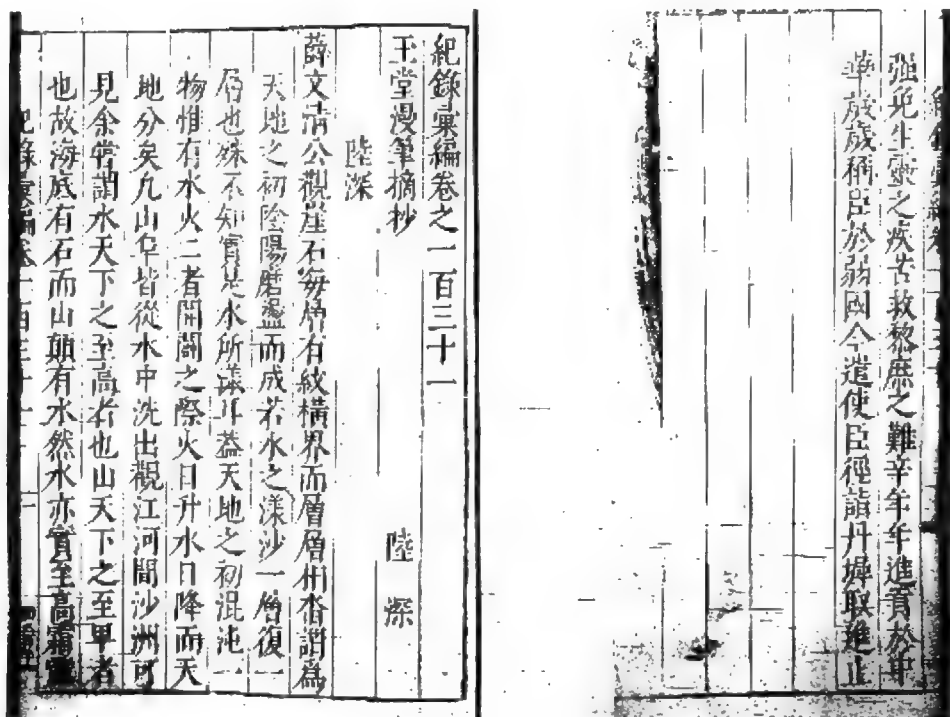 强免生靈之疾苦救黎庶之難辛年年進貢於中
華歲歲稱臣於弱國今遣使臣徑詣丹墀取進止
紀錄彙編卷之一百三十一
玉堂漫筆摘抄
陸 深
陸深
薛文清公觀崖石每層有紋橫界而層層相沓謂爲
天地之初陰陽磨盪而成若水之漾沙一層復一
層也殊不知實是水所漾耳蓋天地之初混沌一
物惟有水火二者開闢之際火日升水日降而天
地分矣凡山阜皆從水中洗出觀江河間沙洲可
見余嘗謂水天下之至高者也山天下之至卑者
也故海底有石而山顛有水然水亦實至高霜
紀錄彙編卷一百三十一